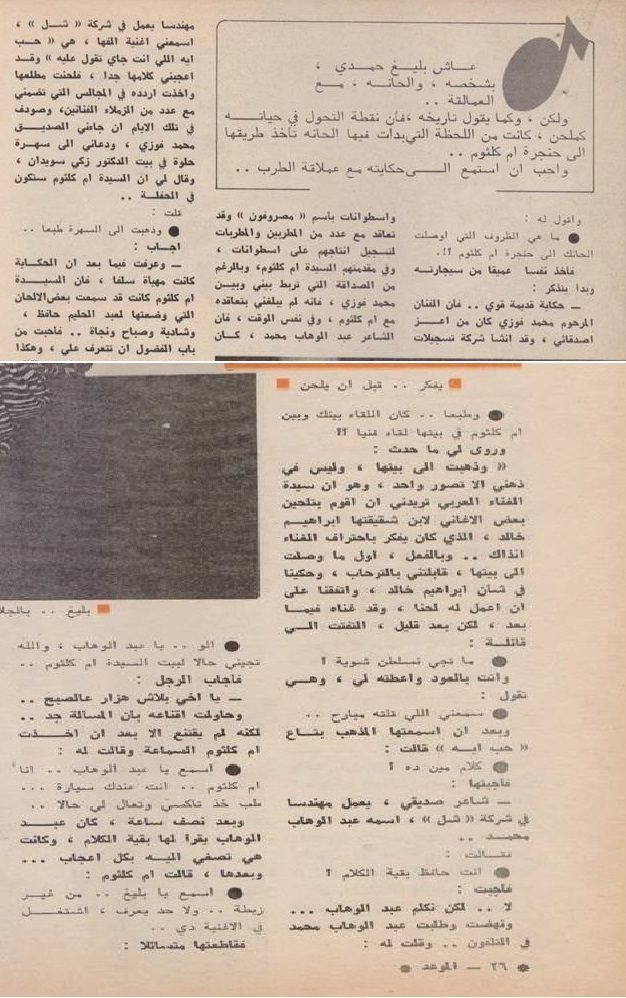 عاش بليغ حمدي ،
بشخصه ، والحانه ، مع
العمالقة ..
ولكن ، وكما يقول تاريخه ،فان نقطة التحول في حياته
كملحن ، كانت من اللحظة التي بدات فيها الحانه تاخذ طريقها
الى حنجرة ام كلثوم ..
واحب ان استمع الى حكايته مع عملاقة الطرب ..
واقول له :
● ما هي الظروف التي اوصلت
الحانك الى حنجرة ام كلثوم ؟!.
فأخذ نفسا عميقا من سيجارته
وبدا يتذكر :
ـ حكاية قديمة قوي .. فان الفنان
المرحوم محمد فوزي كان من اعز
اصدقائي ، وقد انشا شركة تسجيلات
واسطوانات باسم « مصرفون » وقد
تعاقد مع عدد من المطربين والمطربات
لتسجيل انتاجهم على اسطوانات ،
وفي مقدمتهم السيدة ام كلثوم، وبالرغم
من الصداقة التي تربط بيني وبين
محمد فوزي ، فانه لم يبلغني بتعاقده
مع ام كلثوم ، وفي نفس الوقت ، فان
الشاعر عبد الوهاب محمد ، كان
مهندسا يعمل في شركة « شل » ،
اسمعني اغنية الفها ، هي « حب
ايه اللي انت جاي تقول عليه » وقد
اعجبني كلامها جدا ، فلحنت مطلعها
واخذت اردده في المجالس التي تضمني
مع عدد من الزملاء الفنانين، وصودف
في تلك الايام ان جاءني الصديق
محمد فوزي ، ودعاني الى سهرة
حلوة في بيت الدكتور زكي سويدان ،
وقال لي ان السيدة ام كلثوم ستكون
في الحفلة ..
قلت :
● وذهبت الى السهرة طبعا ..
اجاب :
ـ وعرفت فيما بعد ان الحكاية
كانت مهياة سلفا ، فان السيدة
ام كلثوم كانت قد سمعت بعض الالحان
التي وضعتها لعبد الحليم حافظ ،
وشادية وصباح ونجاة .. فاحبت من
باب الفضول ان تتعرف علي ، وهكذا
يفكر .. قبل ان يلحن
● وطبعا .. كان اللقاء بينك وبين
ام كلثوم في بيتها لقاء فنيا ؟؟
وروى لي ما حدث :
« وذهبت الى بيتها ، وليس في
ذهني الا تصور واحد ، وهو ان سيدة
الغناء العربي تريدني ان اقوم بتلحين
بعض الاغاني لابن شقيقتها ابراهيم
خالد ، الذي كان يفكر باحتراف الغناء
انذاك .. وبالفعل ، اول ما وصلت
الى بيتها ، قابلتني بالترحاب ، وحكينا
في شان ابراهيم خالد ، واتفقنا على
ان اعمل له لحنا ، وقد غناه فيما
بعد ، لكن بعد قليل ، التفتت الي
قائلة :
● ما تجي نسلطن شوية ؟
واتت بالعود واعطته لي ، وهي
تقول :
● سمعني اللي قلته مبارح ..
وبعد ان اسمعتها المذهب بتاع
« حب ايه » قالت :
● كلام مين ده ؟
فأجبتها :
ـ شاعر صديقي ، يعمل مهندسا
في شركة « شل » ، اسمه عبد الوهاب
محمد ..
فقالت :
● انت حافظ بقية الكلام ؟
فاجبت :
لا .. لكن نكلم عبد الوهاب ...
ونهضت وطلبت عبد الوهاب محمد
في التلفون .. وقلت له :
بليغ ..
● الو .. يا عبد الوهاب ، والله
تجيني حالا لبيت السيدة ام كلثوم ..
فأجاب الرجل :
ـ يا اخي بلاش هزار عالصبح ..
وحاولت اقناعه بان المسالة جد ..
لكنه لم يقتنع الا بعد ان اخذت
ام كلثوم السماعة وقالت له :
● اسمع يا عبد الوهاب .. انا
ام كلثوم .. انت عندك سيارة ...
طب خذ تاكسي وتعال لي حالا ..
وبعد نصف ساعة ، كان عبد
الوهاب يقرا لها بقية الكلام ، وكانت
هي تصغي اليه بكل اعجاب ...
وبعدها ، قالت ام كلثوم :
● اسمع يا بليغ .. من غير
زيطة .. ولا حد يعرف ، اشتغل
في الاغنية دي ..
فقاطعتها متسائلا :
٢٦ ـ الموعد